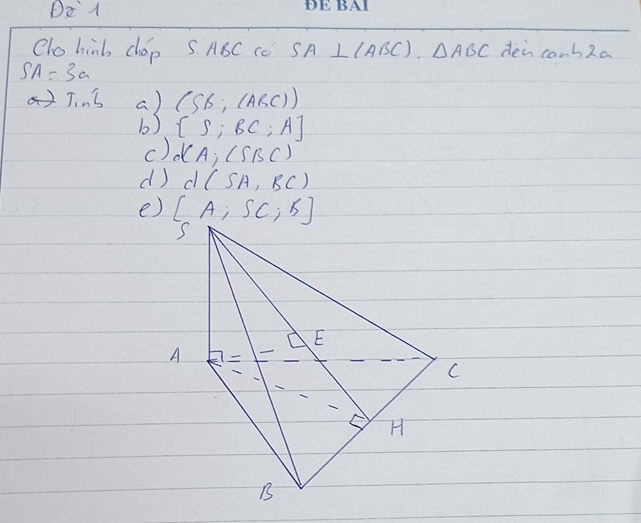 Đề 1
ĐỀ BÀI
Cho hình chóp S.ABC có SA ⊥ (ABC). ΔABC đều cạnh 2a
SA = 3a
a) Tính a) (SB; (ABC))
b) [S; BC; A]
c) d(A; (SBC)
d) d(SA, BC)
e) [A; SC; B]
S
E
A
C
H
B